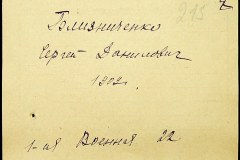 Близниченко
Сергей Данилович
1902г.
1-ая Военная 22